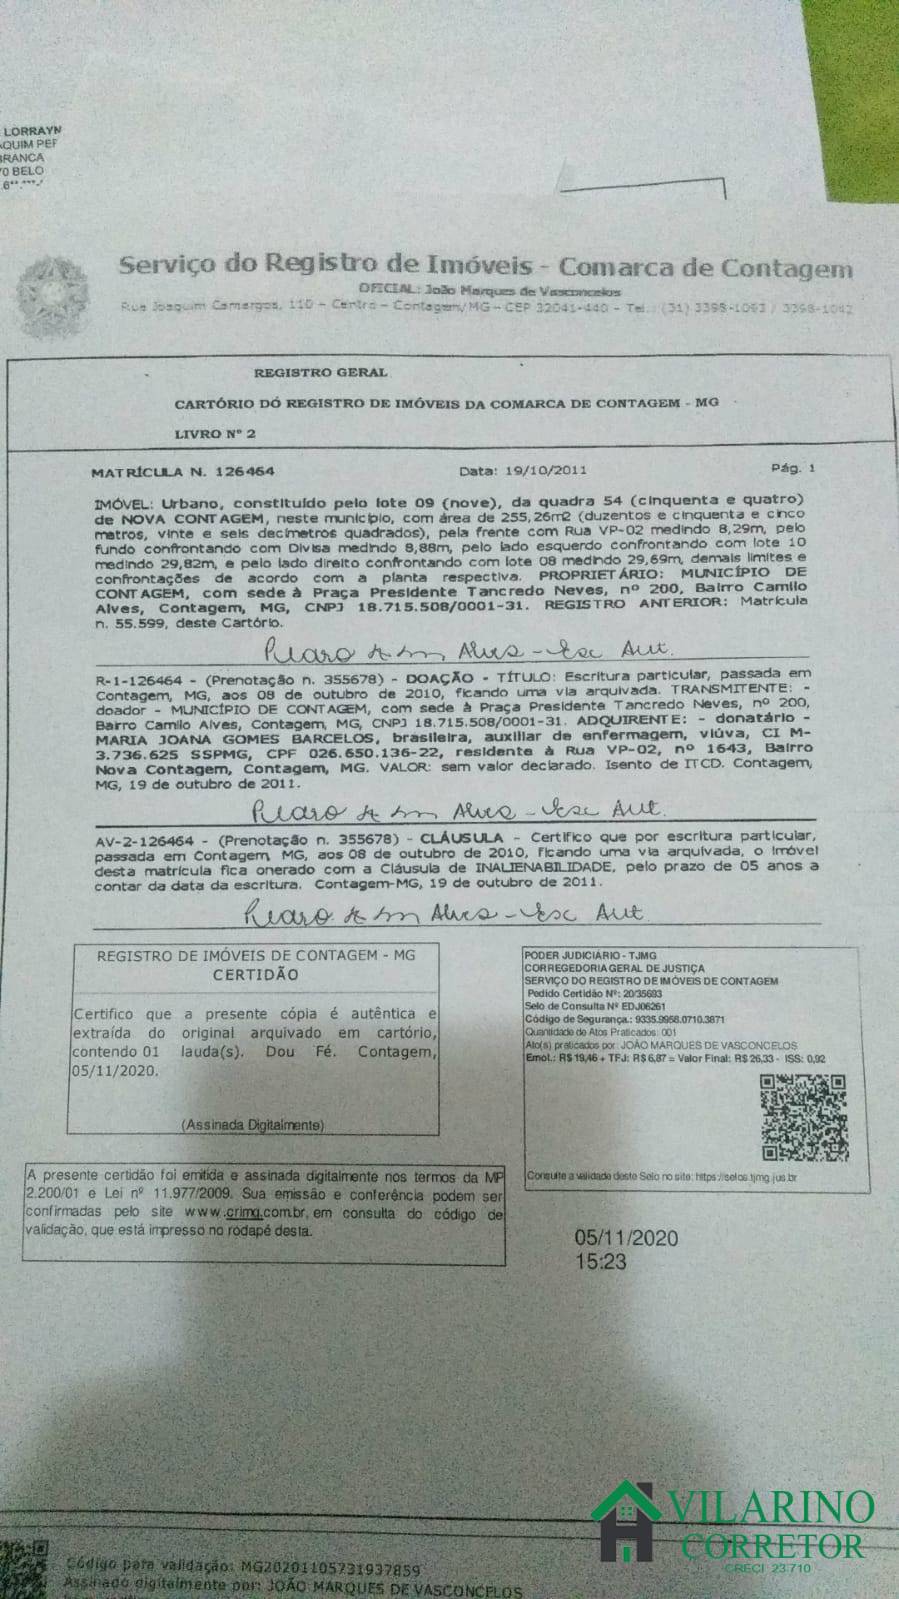 LORRAYN
AQUIM PER
BRANCA
70 BELO
Serviço do Registro de Imóveis - Comarca de Contagem
OFICIAL: João Marques de Vasconcelos
Rua Joaquim Camargos, 110 – Centro – Contagem/MG – CEP 32041-440 – Tel.: (31) 3398-1093 / 3398-1042
REGISTRO GERAL
CARTÓRIO DO REGISTRO DE IMÓVEIS DA COMARCA DE CONTAGEM - MG
LIVRO Nº 2
MATRÍCULA N. 126464 Data: 19/10/2011 Pág. 1
IMÓVEL: Urbano, constituído pelo lote 09 (nove), da quadra 54 (cinquenta e quatro)
de NOVA CONTAGEM, neste município, com área de 255,26m2 (duzentos e cinquenta e cinco
metros, vinte e seis decímetros quadrados), pela frente com Rua VP-02 medindo 8,29m, pelo
fundo confrontando com Divisa medindo 8,88m, pelo lado esquerdo confrontando com lote 10
medindo 29,82m, e pelo lado direito confrontando com lote 08 medindo 29,69m, demais limites e
confrontações de acordo com a planta respectiva. PROPRIETÁRIO: MUNICÍPIO DE
CONTAGEM, com sede à Praça Presidente Tancredo Neves, nº 200, Bairro Camilo
Alves, Contagem, MG, CNPJ 18.715.508/0001-31. REGISTRO ANTERIOR: Matrícula
n. 55.599, deste Cartório.
R-1-126464 - (Prenotação n. 355678) - DOAÇÃO - TÍTULO: Escritura particular, passada em
Contagem, MG, aos 08 de outubro de 2010, ficando uma via arquivada. TRANSMITENTE: -
doador - MUNICÍPIO DE CONTAGEM, com sede à Praça Presidente Tancredo Neves, nº 200,
Bairro Camilo Alves, Contagem, MG, CNPJ 18.715.508/0001-31. ADQUIRENTE: - donatário -
MARIA JOANA GOMES BARCELOS, brasileira, auxiliar de enfermagem, viúva, CI M-
3.736.625 SSPMG, CPF 026.650.136-22, residente à Rua VP-02, nº 1643, Bairro
Nova Contagem, Contagem, MG. VALOR: sem valor declarado. Isento de ITCD. Contagem,
MG, 19 de outubro de 2011.
AV-2-126464 - (Prenotação n. 355678) - CLÁUSULA - Certifico que por escritura particular,
passada em Contagem, MG, aos 08 de outubro de 2010, ficando uma via arquivada, o imóvel
desta matrícula fica onerado com a Cláusula de INALIENABILIDADE, pelo prazo de 05 anos a
contar da data da escritura. Contagem-MG, 19 de outubro de 2011.
REGISTRO DE IMÓVEIS DE CONTAGEM - MG
CERTIDÃO
Certifico que a presente cópia é autêntica e
extraída do original arquivado em cartório,
contendo 01 lauda(s). Dou Fé. Contagem,
05/11/2020.
(Assinada Digitalmente)
PODER JUDICIÁRIO - TJMG
CORREGEDORIA GERAL DE JUSTIÇA
SERVIÇO DO REGISTRO DE IMÓVEIS DE CONTAGEM
Pedido Certidão Nº: 20/35693
Selo de Consulta Nº EDJ06261
Código de Segurança.: 9335.9958.0710.3871
Quantidade de Atos Praticados: 001
Ato(s) praticados por: JOÃO MARQUES DE VASCONCELOS
Emol.: R$ 19,46 + TFJ: R$ 6,87 = Valor Final: R$ 26,33 - ISS: 0,92
Consulte a validade deste Selo no site: https://selos.tjmg.jus.br
A presente certidão foi emitida e assinada digitalmente nos termos da MP
2.200/01 e Lei nº 11.977/2009. Sua emissão e conferência podem ser
confirmadas pelo site www.crimg.com.br, em consulta do código de
validação, que está impresso no rodapé desta.
05/11/2020
15:23
VILARINO
CORRETOR
CRECI 23.710
Código para validação: MG20201105731937859
Assinado digitalmente por: JOÃO MARQUES DE VASCONCELOS